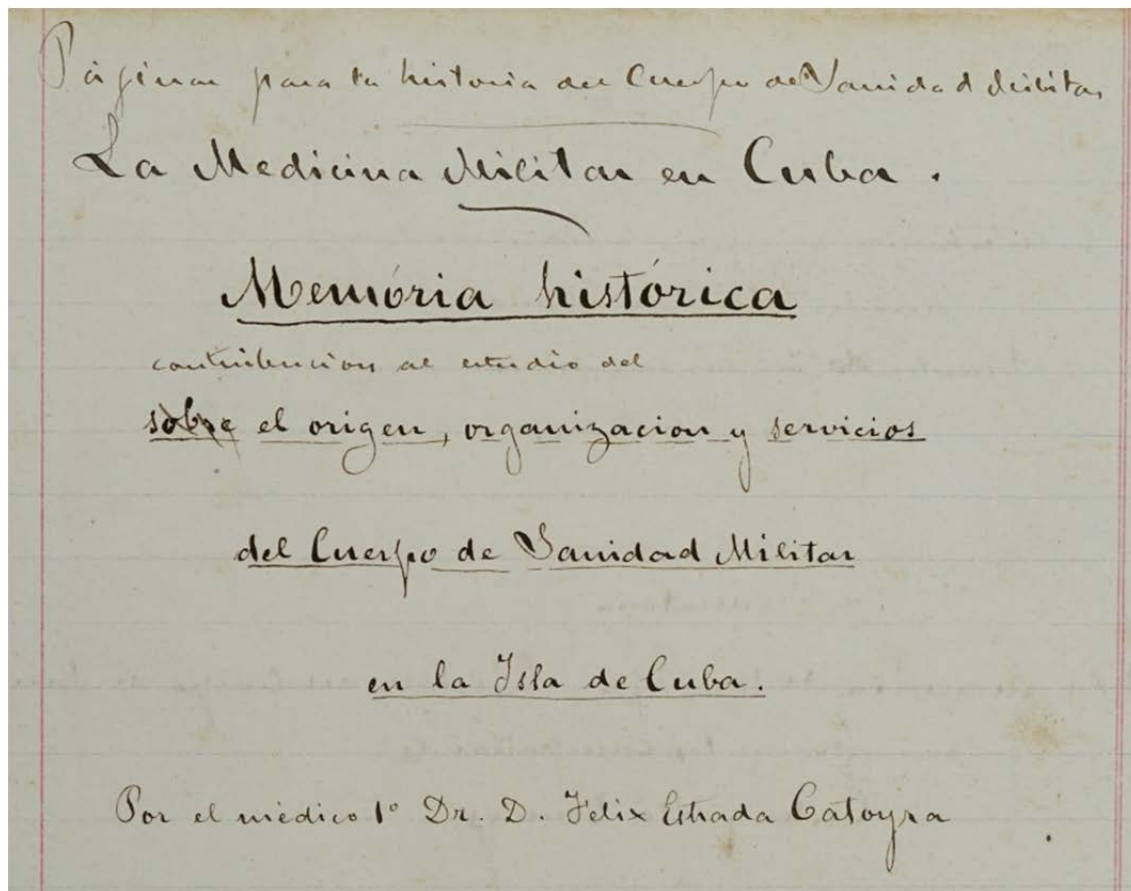 Páginas para la historia del Cuerpo de Sanidad Militar
La Medicina Militar en Cuba.
Memória história
contribucion al estudio del
sobre el origen, organizacion y servicios
del Cuerpo de Sanidad Militar
en la Isla de Cuba.
Por el médico 1º Dr. D. Felix Estrada Catoyra